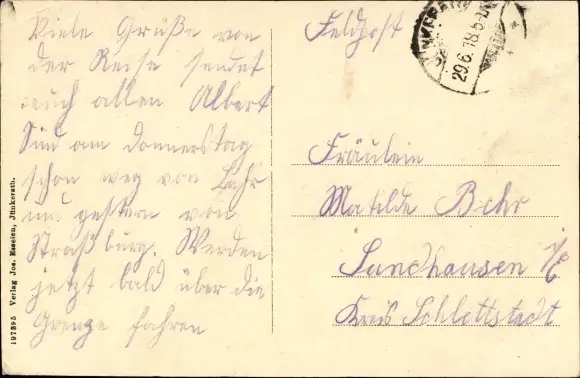 Viele Grüße von
der Reise sendet
auch allen Albert
Sind am Donnerstag
schon weg von Lahr
und gestern von
Straßburg. Werden
jetzt bald über die
Grenze fahren
Feldpost
JÜNKERATH
29.6.18.5-
Fräulein
Matilde Behr
Sundhausen i/E
Kreis Schlettstadt
197895 Verlag Jos. Esseien, Jünkerath.